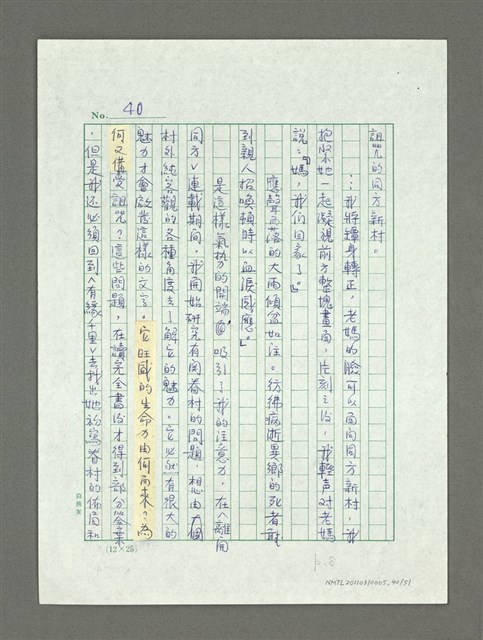 No. 40
詛咒的同方新村。
⋮我將罈身轉正，老媽的臉可以面向同方新村，我
抱緊她一起凝視前方整塊畫面，片刻之後，我輕声对老媽
說：「媽，我们回家了」。
應聲而落的大雨傾盆如注。彷彿病逝異鄉的死者甫
到親人招喚頓時以血淚感應。」
是這樣氣势的開端，吸引了我的注意力，在〈離開
同方〉連載期间，我開始研究有関眷村的問題，想由一個
村外純客觀的各種角度去了解它的魅力。它必就有很大的
魅力才會啟發這樣的文字。它旺盛的生命力由何而來？為
何又備受詛咒？這些問題，在讀完全書後才得到部分答案
，但是我还必須回到〈有緣千里〉去找出她於寫眷村的佈局和
(12×25)
NMTL20110310005_40/51